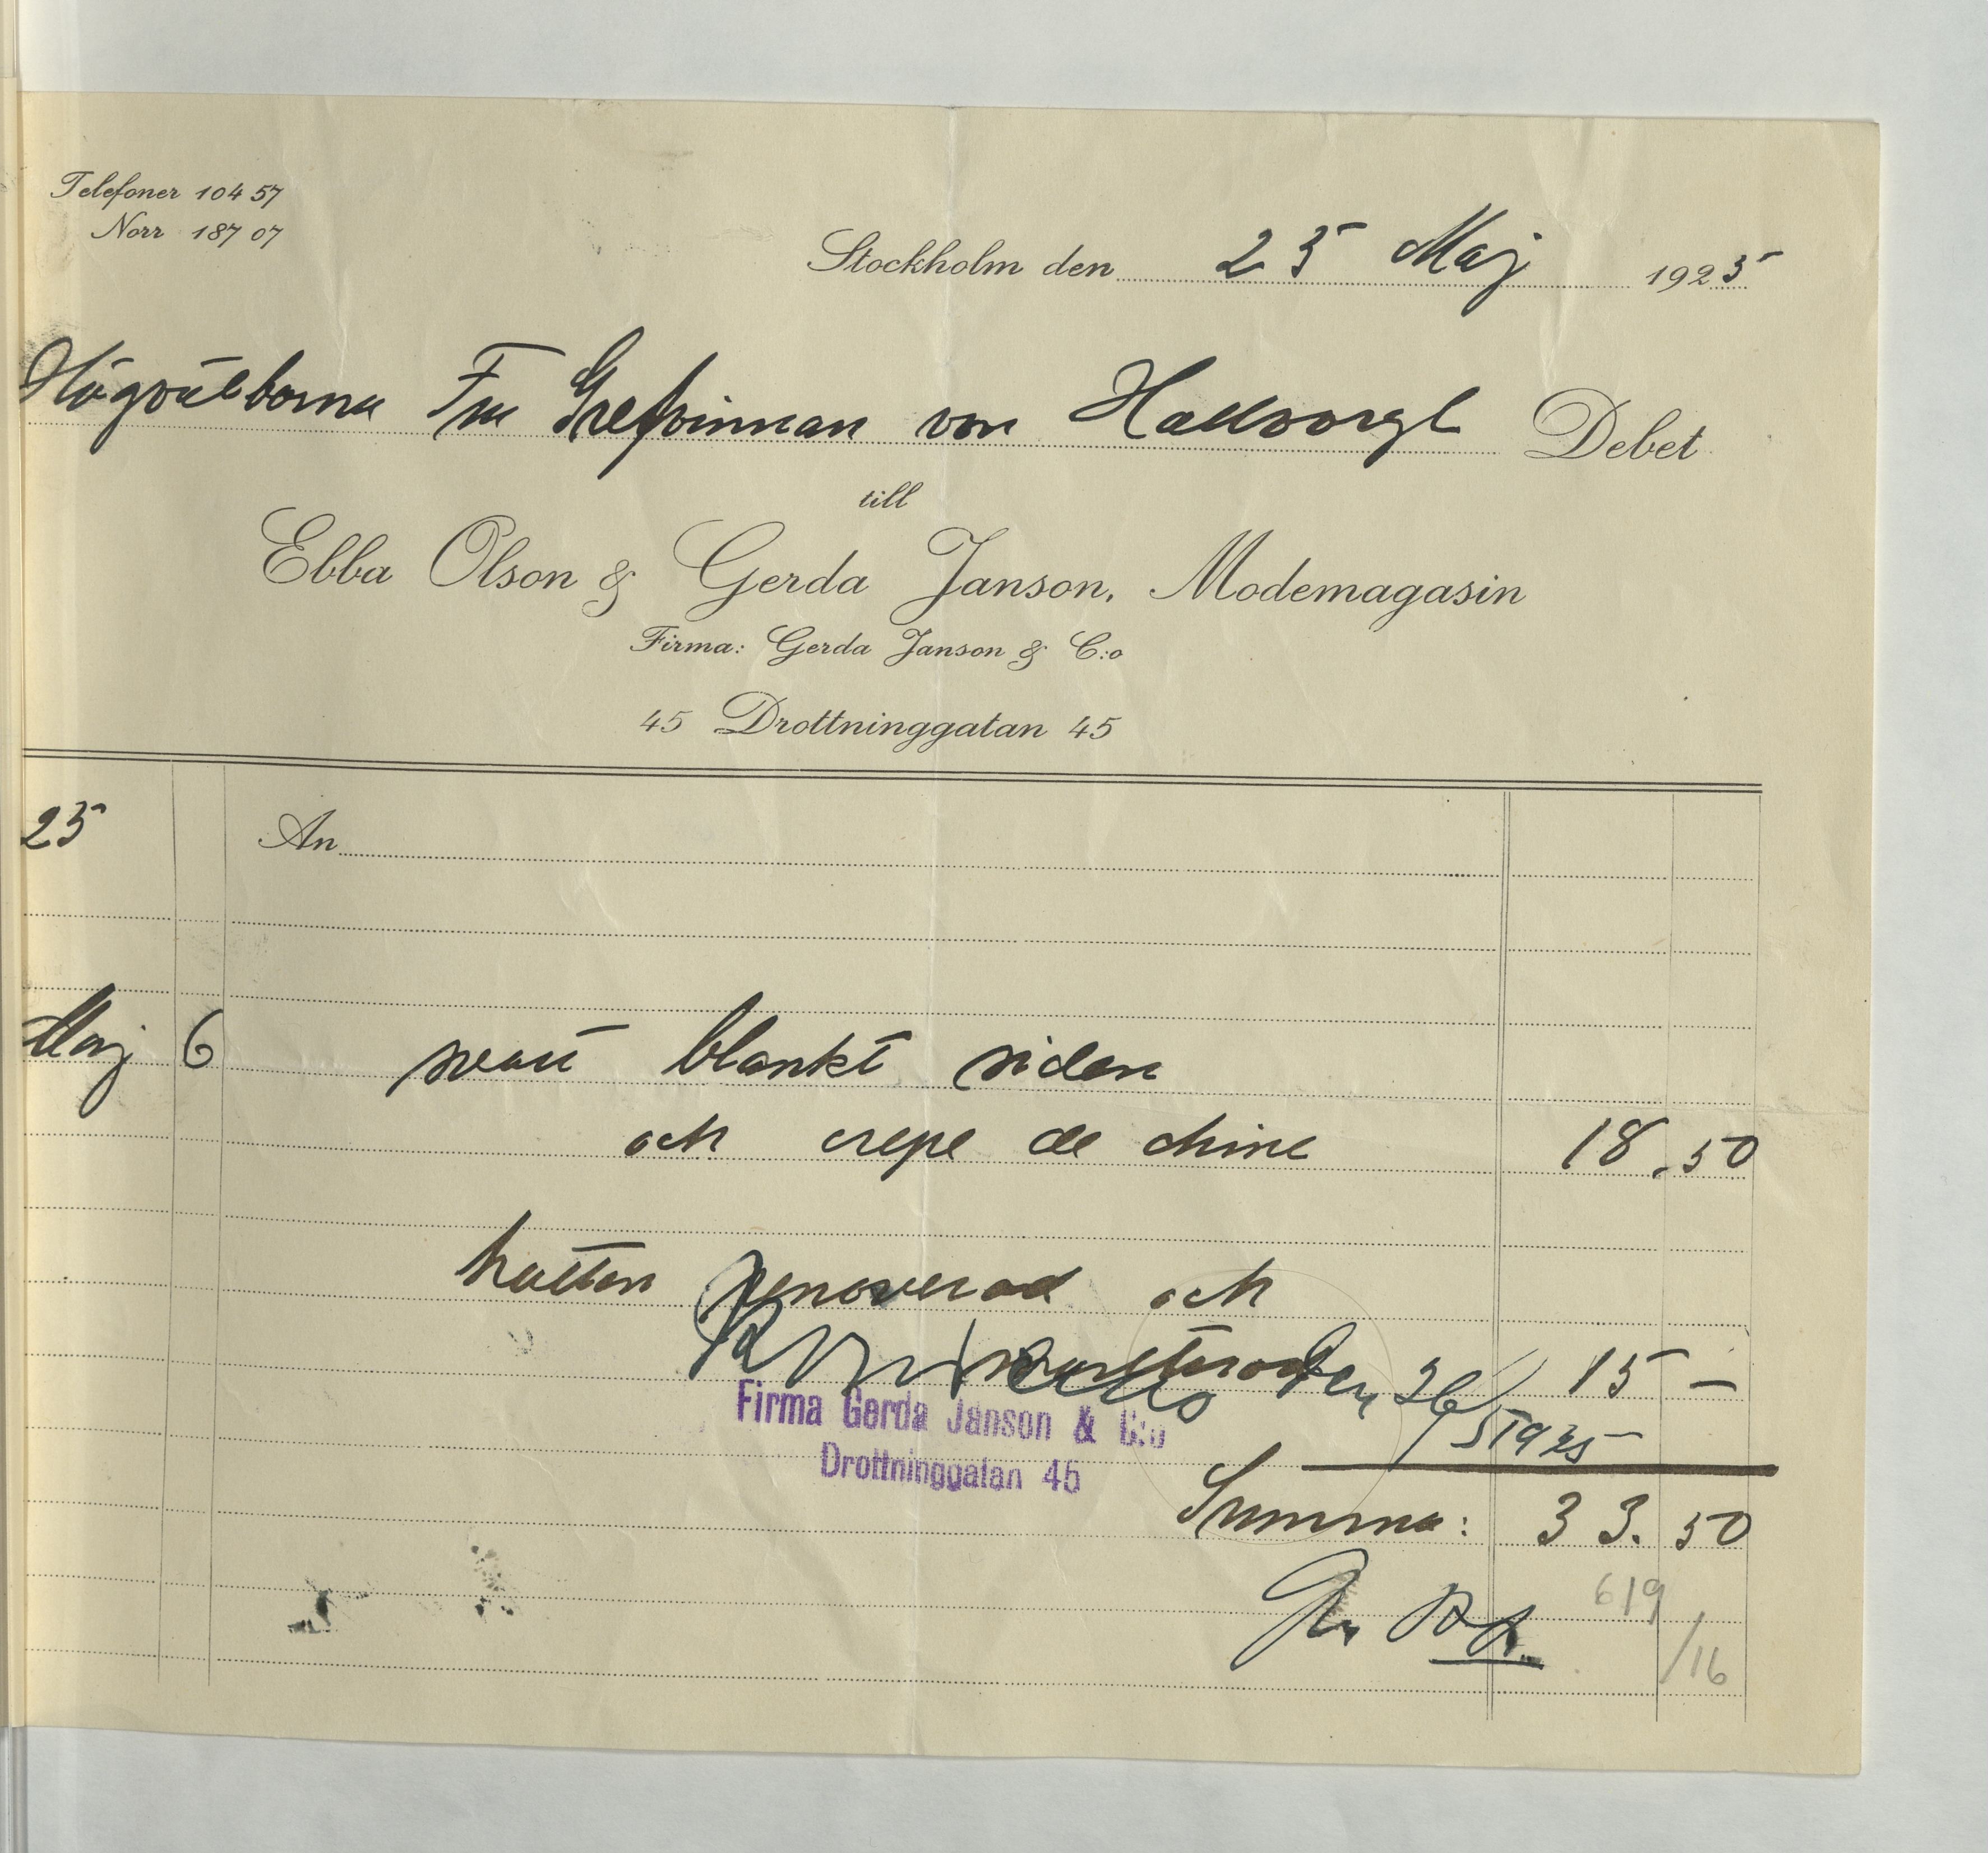 Telefoner 104 57
Norr 187 07
Stockholm den 25 Maj 1925
Högvälborna Fru Grefvinnan von Hallwyl Debet
till
Ebba Olson & Gerda Janson, Modemagasin
Firma: Gerda Janson & C:o
45 Drottninggatan 45
25 An
Maj 6 svart blankt siden
och crepe de chine 18.50
hatten renoverad och
15 –
den 26/5 1925
Firma Gerda Janson & C:o
Drottninggatan 45
Summa: 33.50
619
/16